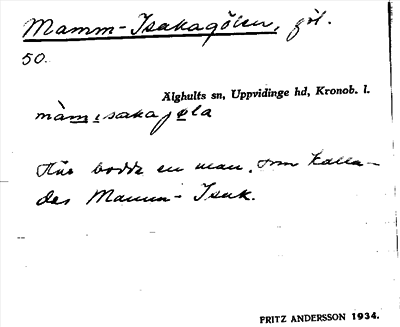 Mamm-Isakagölen, göl.
50.
Älghults sn, Uppvidinge hd, Kronob. l.
màmɪsakajøla
Här bodde en man, som kalla-
des Mamm-Isak.
FRITZ ANDERSSON 1934.